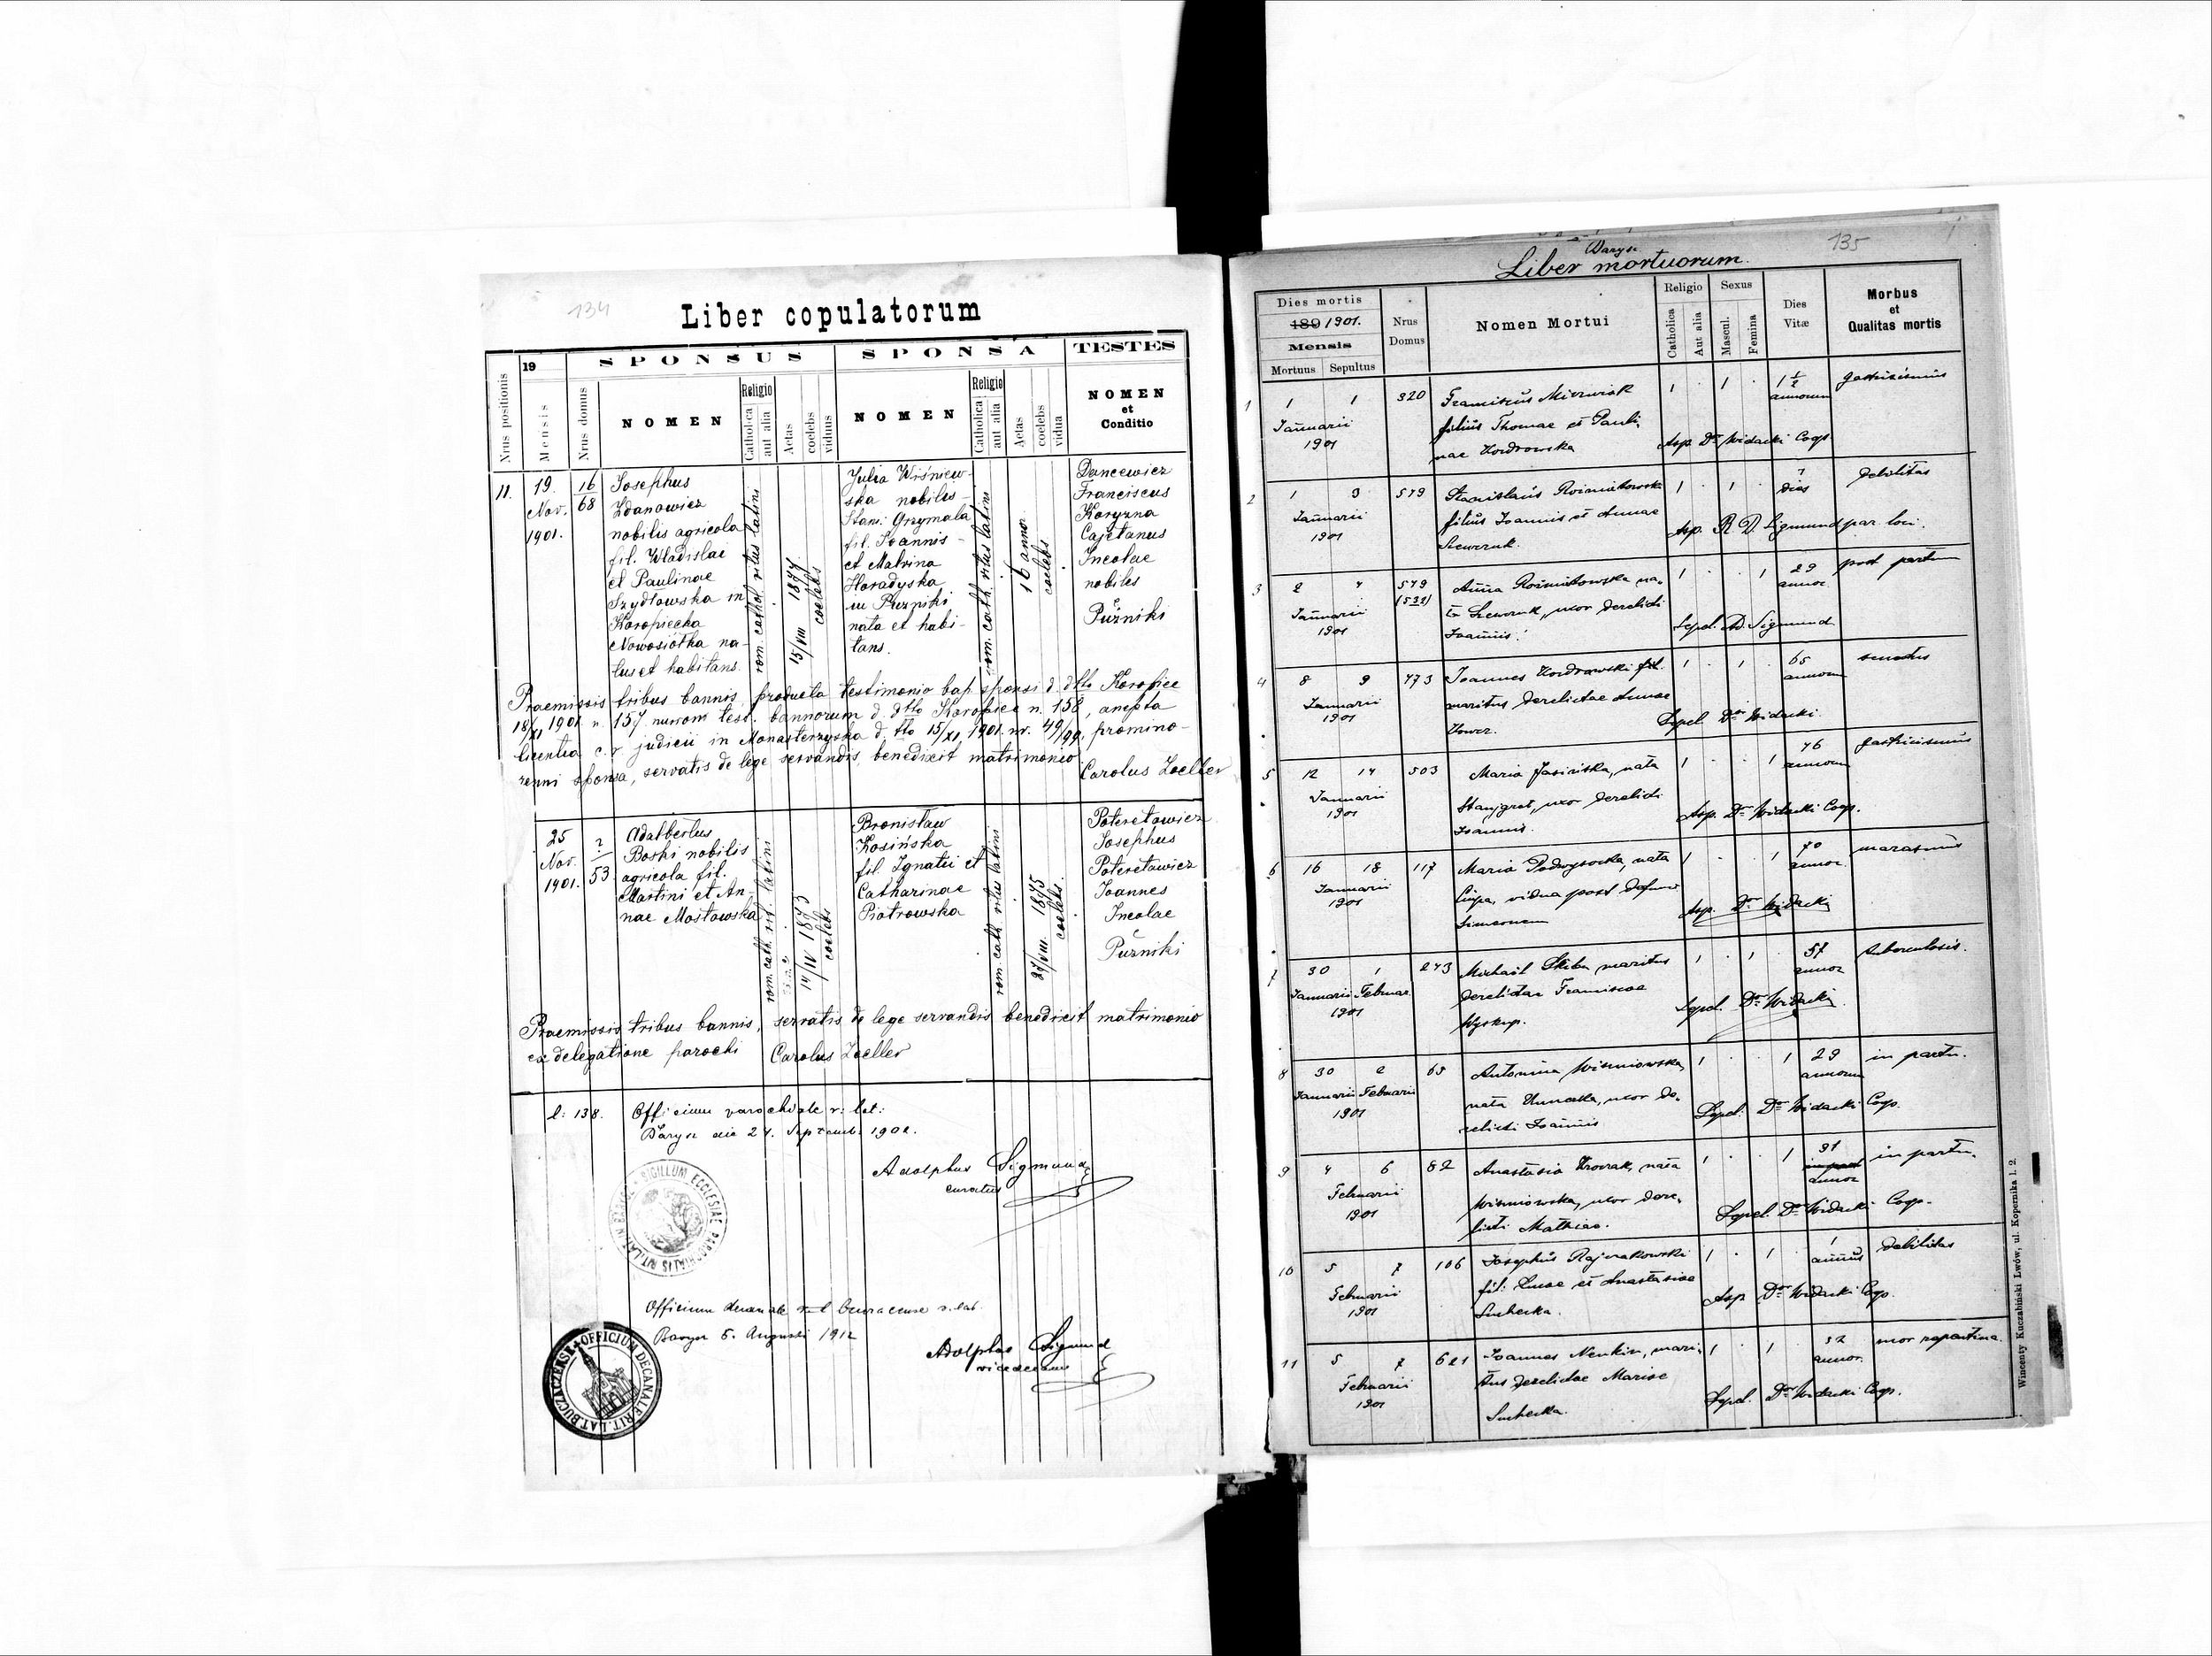 134
Liber copulatorum
Nrus positionis
19
Mensis
Nrus domus
SPONSUS
NOMEN
Religio
Catholica
aut alia
Aetas
coelebs
viduus
SPONSA
NOMEN
Religio
Catholica
aut alia
Aetas
coelebs
vidua
TESTES
NOMEN
et
Conditio
11.
19.
Nov.
1901.
16
68
Josephus
Zdanowicz
nobilis agricola
fil. Wladislae
et Paulinae
Szydłowska in
Koropiecka
Nowosiółka na-
tus et habitans.
rom. cathol. ritus latini
15/VIII 1877
coelebs
Julia Wiśniew-
ska nobilis
Stani. Grzymala
fil. Joannis
et Malvina
Horadyska
in Puzniki
nata et habi-
tans.
rom. cath. ritus latini
16 annor.
coelebs
Dancewicz
Franciscus
Koryzna
Cajetanus
Incolae
nobiles
Puzniki
Praemissis tribus bannis, producta testimonio bap. sponsi d. dtto Koropiec
18/XI 1901 n. 157 nurrom test. bannorum d. dtto Koropiec n. 158, accepta
licentia c. r. judicii in Monasterzyska d. tto 15/XI 1901. nr. 49/99, promino-
renni sponsa, servatis de lege servandis, benedixit matrimonio
Carolus Zoeller
25
Nov.
1901.
?
53
Adalbertus
Boski nobilis
agricola fil.
Martini et An-
nae Mostowska
rom. cath. rit. latini
14/IV 1873
coelebs
Bronisław
Kosińska
fil. Ignatii et
Catharinae
Piotrowska
rom. cath. ritus latini
27/VIII. 1875
coelebs
Poteretowicz
Josephus
Poteretowicz
Joannes
Incolae
Puzniki
Praemissis tribus bannis, servatis de lege servandis benedixit matrimonio
ex delegatione parochi Carolus Zoeller
l: 138.
Officium parochiale r: lat:
Barysz die 24. Septemb. 1902.
Adolphus Sigmund
curatus
SIGILLUM ECCLESIAE PAROCHIALIS RIT. LAT. IN BARYSZ
Barysz 5. Augusti 1912
Adolphus Sigmund
vicedecanus
OFFICIUM DECANALE RIT. LAT. BUCZACZENSE
135
Barysz
Liber mortuorum.
Dies mortis
189 1901.
Mensis
Mortuus
Sepultus
Nrus
Domus
Nomen Mortui
Religio
Catholica
Aut alia
Sexus
Mascul.
Femina
Dies
Vitæ
Morbus
et
Qualitas mortis
1
1 1
Januarii
1901
320
Franciscus Mierzwiak
filius Thomae et Pauli-
nae Kordrowska
1 · 1 ·
1 1/2
annorum
gastricismus
Asp. Dr Widacki Coop
2
1 3
Januarii
1901
579
Stanislaus Rozmiatowski
filius Joannis et Annae
Szewczuk.
1 · 1 ·
7
dies
debilitas
Asp. R. D. Sigmund par. loci.
3
2 4
Januarii
1901
579
(532)
Anna Rozmiatowska na-
ta Szewczuk, uxor derelicti
Joannis.
1 · · 1
29
annor.
post partum
Sepel. Ad. Sigmund
4
8 9
Januarii
1901
773
Joannes Kordrowski fil.
maritus derelictae Annae
Kower.
1 · 1 ·
65
annorum
senectus
Sepel. Dr Widacki.
5
12 14
Januarii
1901
503
Maria Jasińska, nata
Stanigret, uxor derelicti
Joannis.
1 · · 1
76
annorum
gastricismus
Asp. Dr Widacki Coop.
6
16 18
Januarii
1901
117
Maria Podwysocka, nata
Ciupa, vidua post defunc.
Simeonem
1 · · 1
70
annor.
marasmus
Asp. Dr Widacki
7
30 1
Januarii Februar.
1901
273
Michael Skiba maritus
derelictae Franciscae
Wyskup.
1 · 1 ·
57
annor.
tuberculosis.
Sepel. Dr Widacki
8
30 2
Januarii Februarii
1901
65
Antonina Wiśniowska,
uxor de-
relicti Joannis
1 · · 1
29
annorum
in partu.
Sepel. Dr Widacki Coop.
9
4 6
Februarii
1901
82
Anastasia Krowiak, nata
Wiśniowska, uxor dere-
licti Mathiae.
1 · · 1
31
annor.
in partu.
Sepel. Dr Widacki Coop.
10
5 7
Februarii
1901
106
Josephus Rajczakowski
fil: Lucae et Anastasiae
Suchecka.
1 · 1 ·
1
annus
debilitas
Asp. Dr Widacki Coop.
11
5 7
Februarii
1901
621
Joannes Nenkin, mari-
tus derelictae Mariae
Suchecka.
1 · 1
52
annor.
mor repentina.
Sepel. Dr Widacki Coop.
Wincenty Kuczabiński Lwów, ul. Kopernika l. 2.